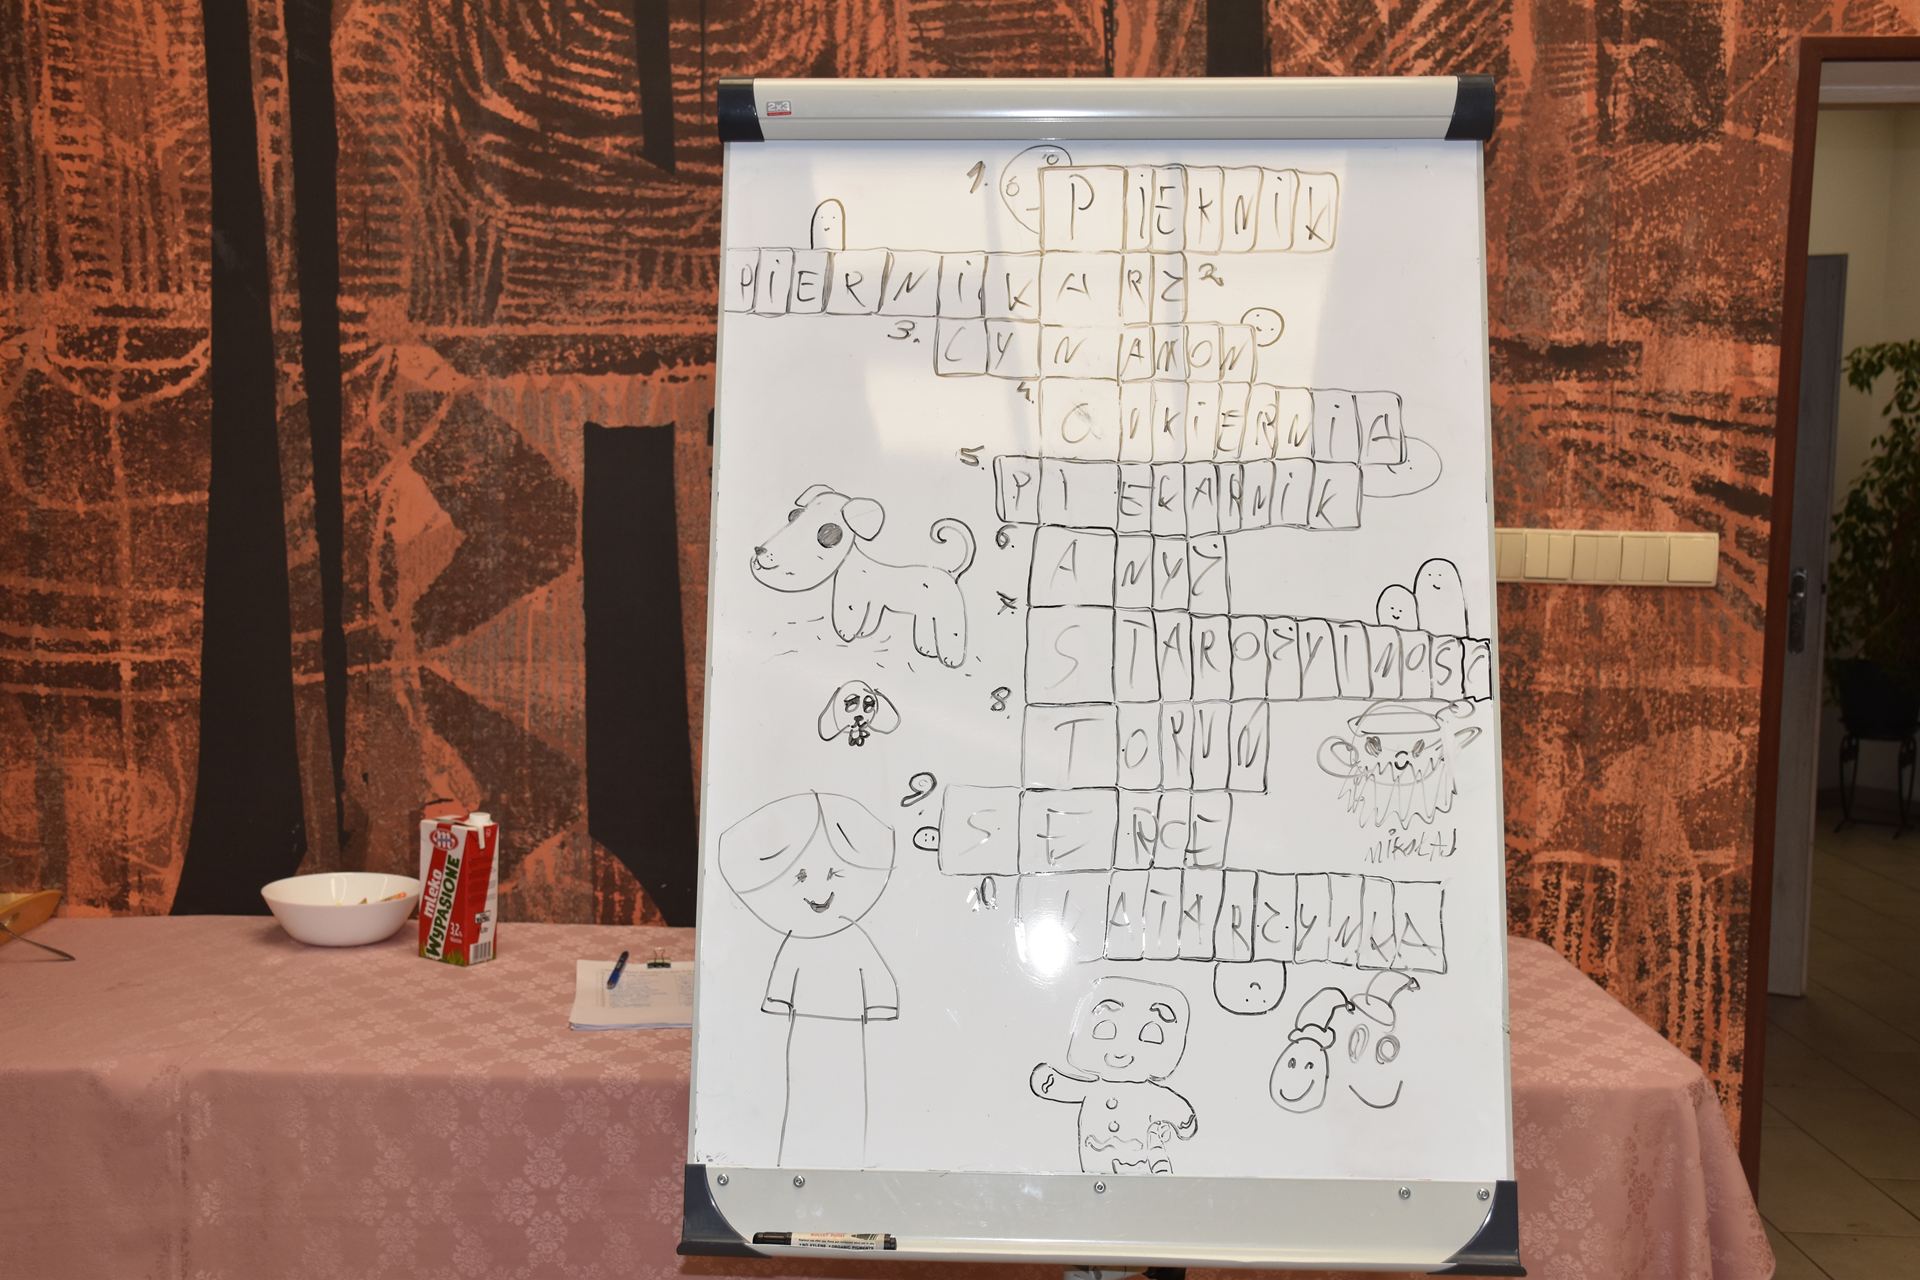 2x3
1. PiEKNiK
PiERNiKARZ 2
3. CYNAMON
4. CUKiERNiA
5. PIEKARNiK
6. ANYŻ
7. STAROŻYTNOŚĆ
8. TORUN
9 SERCE
10 KATARZYNKA
MiKOŁAJ
mleko
WYPASIONE
3,2%